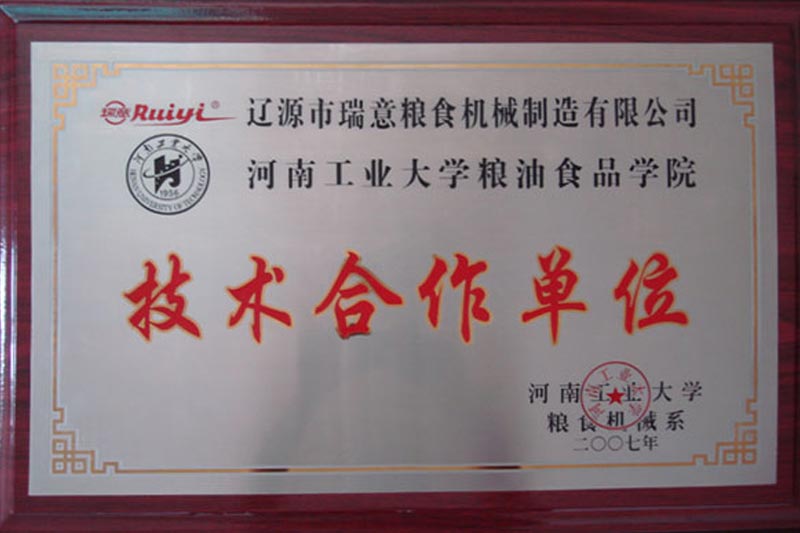 瑞意 Ruiyi® 辽源市瑞意粮食机械制造有限公司
河南工业大学
1956
HENAN UNIVERSITY OF TECHNOLOGY
河南工业大学粮油食品学院
技术合作单位
河南工业大学
粮食机械系
二〇〇七年
河南工业大学